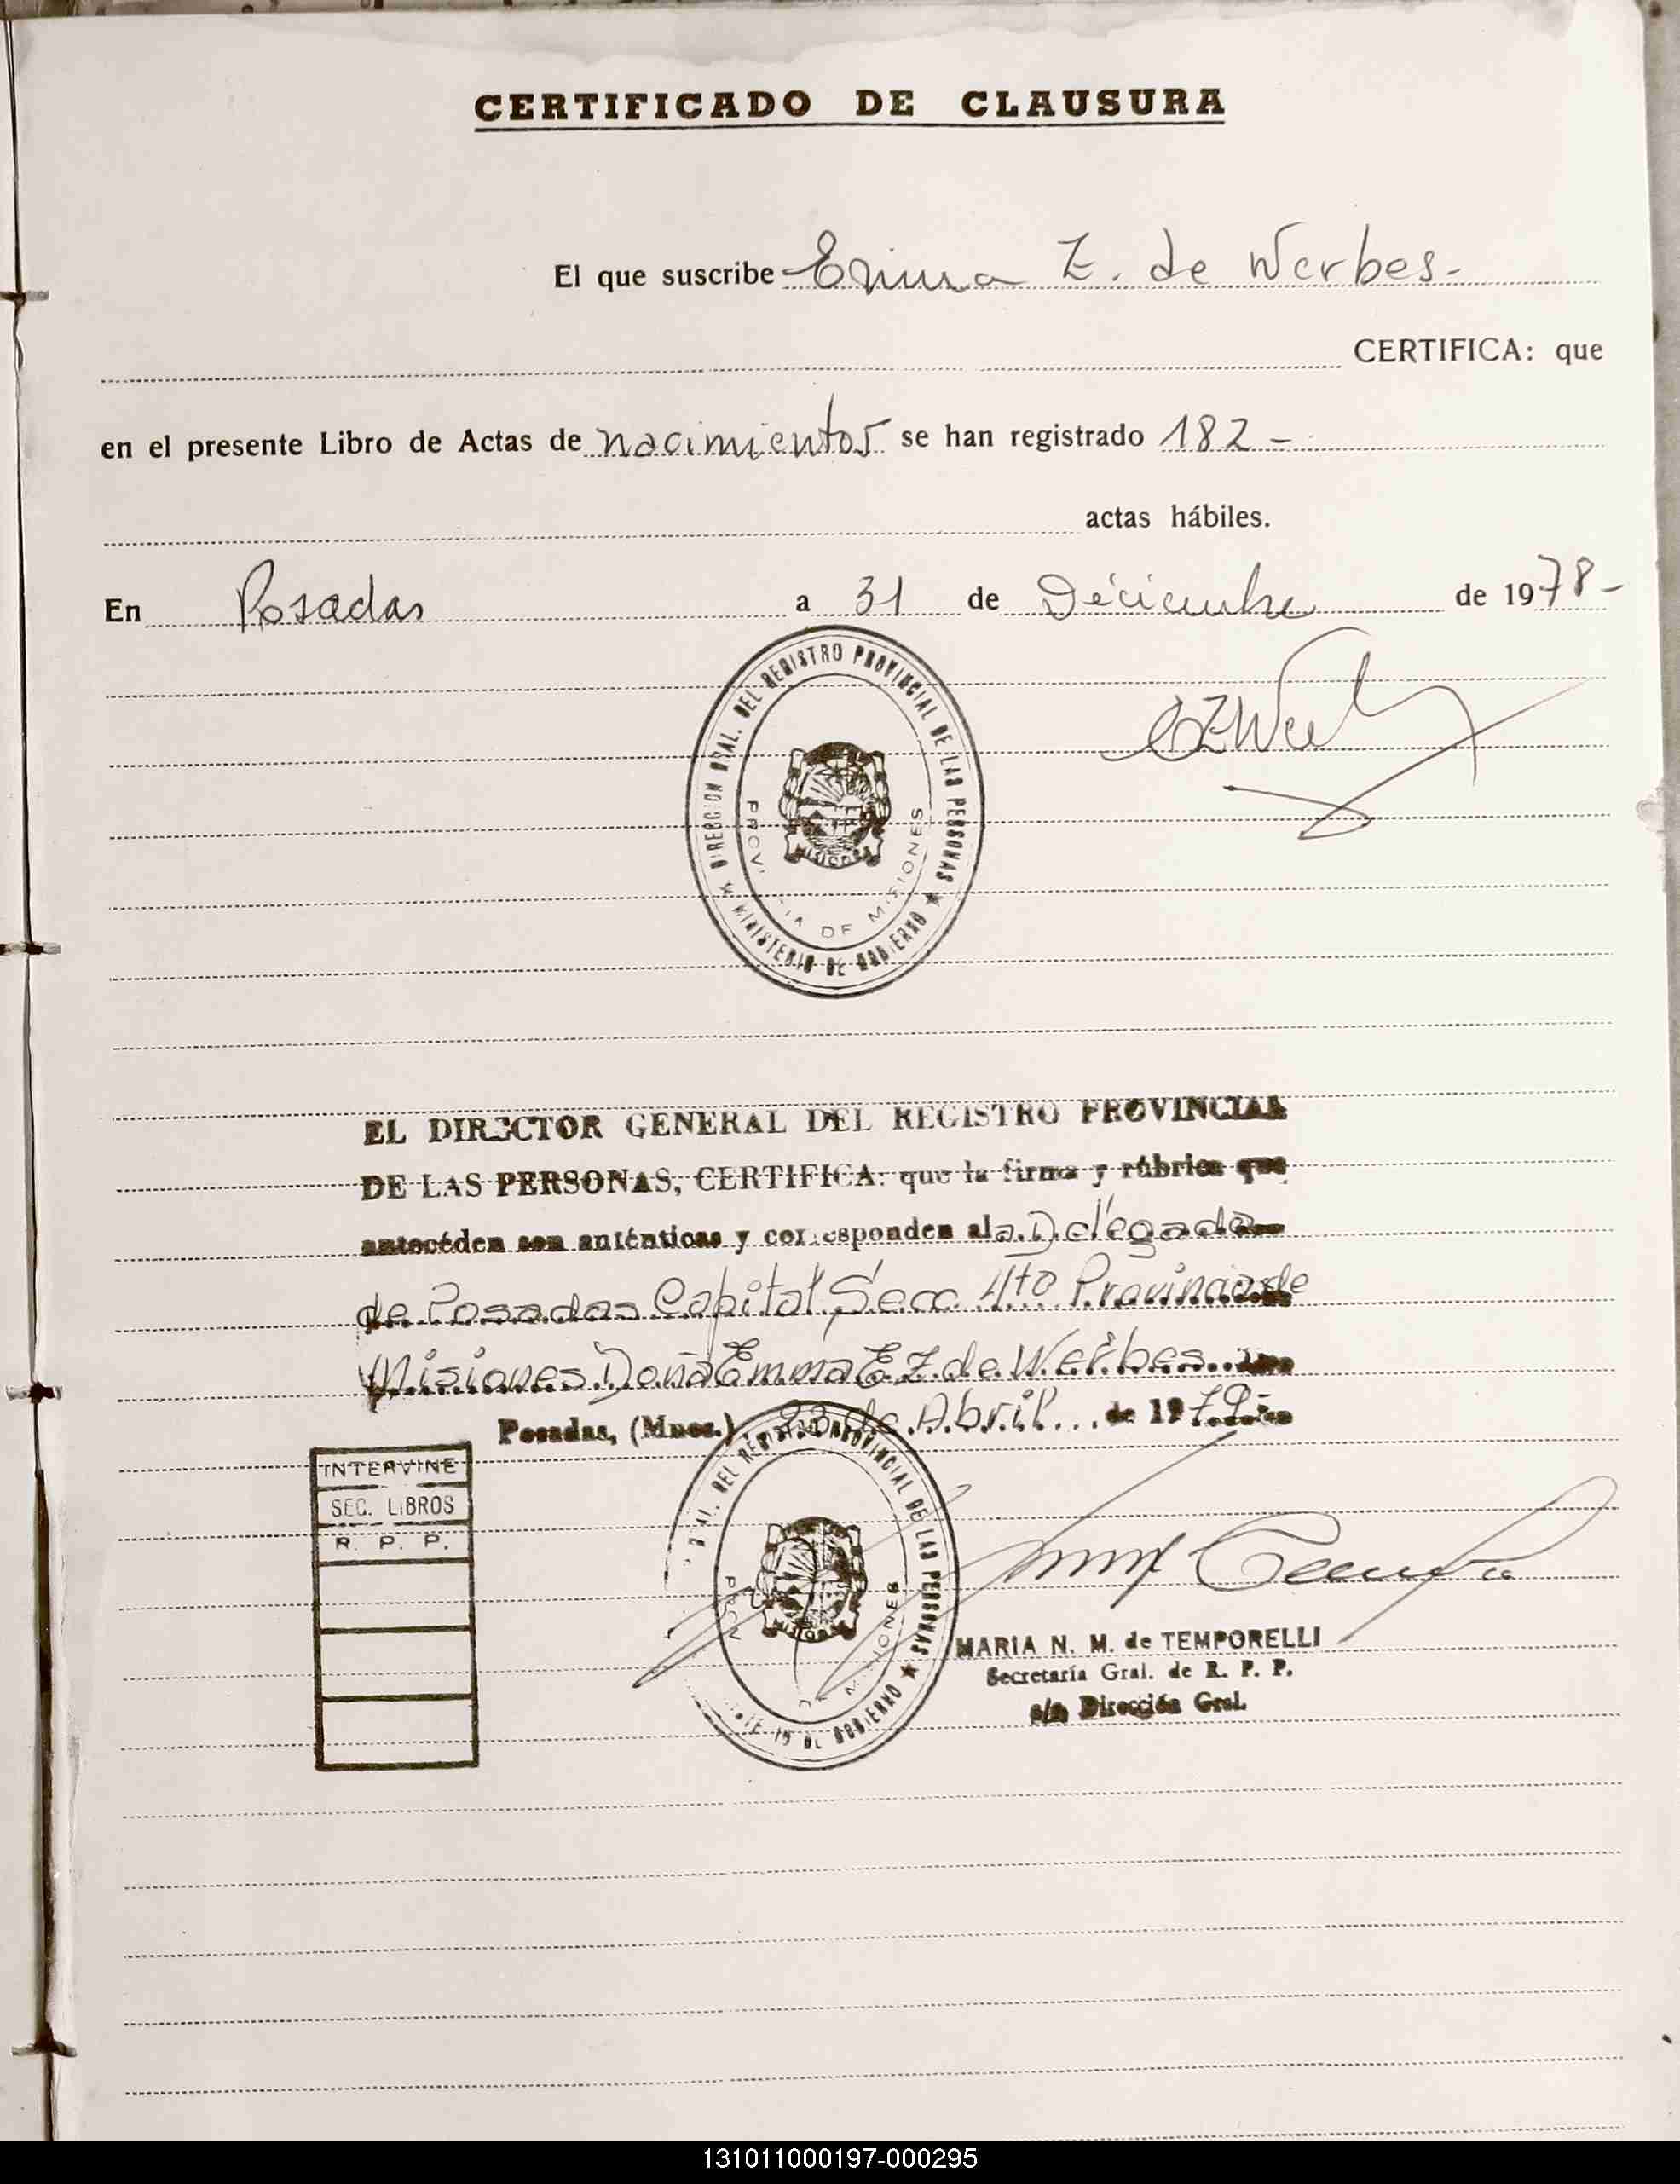 CERTIFICADO DE CLAUSURA
El que suscribe Emma Z. de Werbes.-
CERTIFICA: que
en el presente Libro de Actas de nacimientos se han registrado 182 -
actas hábiles.
En Posadas a 31 de Diciembre de 1978-
DIRECCION GRAL. DEL REGISTRO PROVINCIAL DE LAS PERSONAS
MINISTERIO DE GOBIERNO
PROVINCIA DE MISIONES
EL DIRECTOR GENERAL DEL REGISTRO PROVINCIAL
DE LAS PERSONAS, CERTIFICA: que la firma y rúbrica que
antecéden son auténticas y corresponden al a Delegada
de Posadas Capital Secc. 4to Provincia de
Misiones Doña Emma E. Z. de Werbes
Posadas, (Mnes.) 23 de Abril de 1979-
INTERVINE
SEC. LIBROS
R. P. P.
DEL REGISTRO PROVINCIAL DE LAS PERSONAS
DE GOBIERNO
MARIA N. M. de TEMPORELLI
Secretaría Gral. de R. P. P.
a/c Dirección Gral.
131011000197-000295